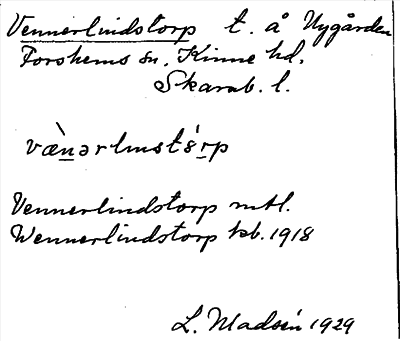 Vennerlindstorp t. å Nygården
Forshems sn. Kinne hd.
Skarab. l.
væ̀nərlınstórp
Vennerlindstorp mtl.
Wennerlindstorp kb. 1918
L. Madsén 1929